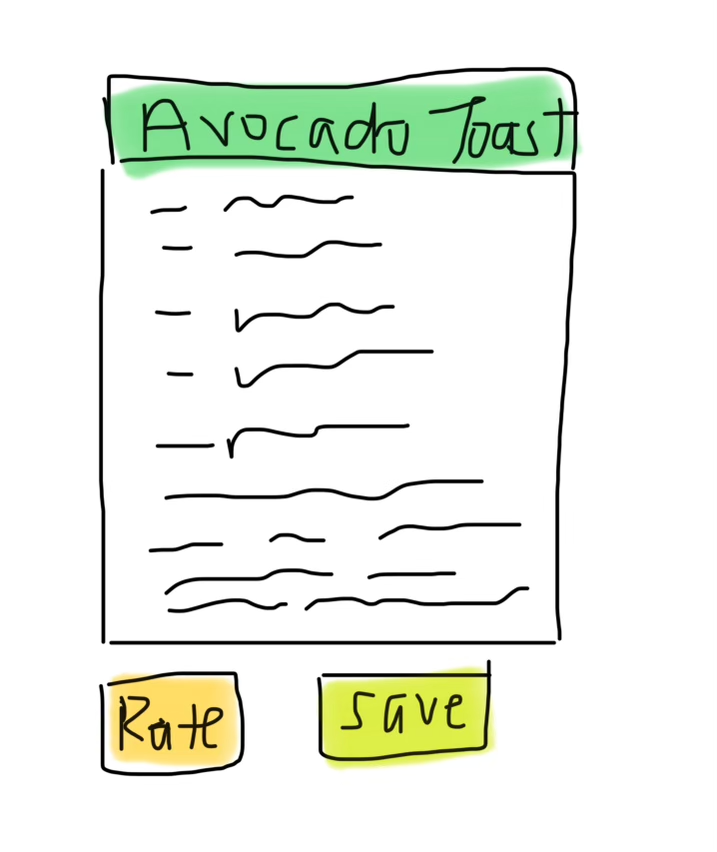 Avocado Toast
Rate
save